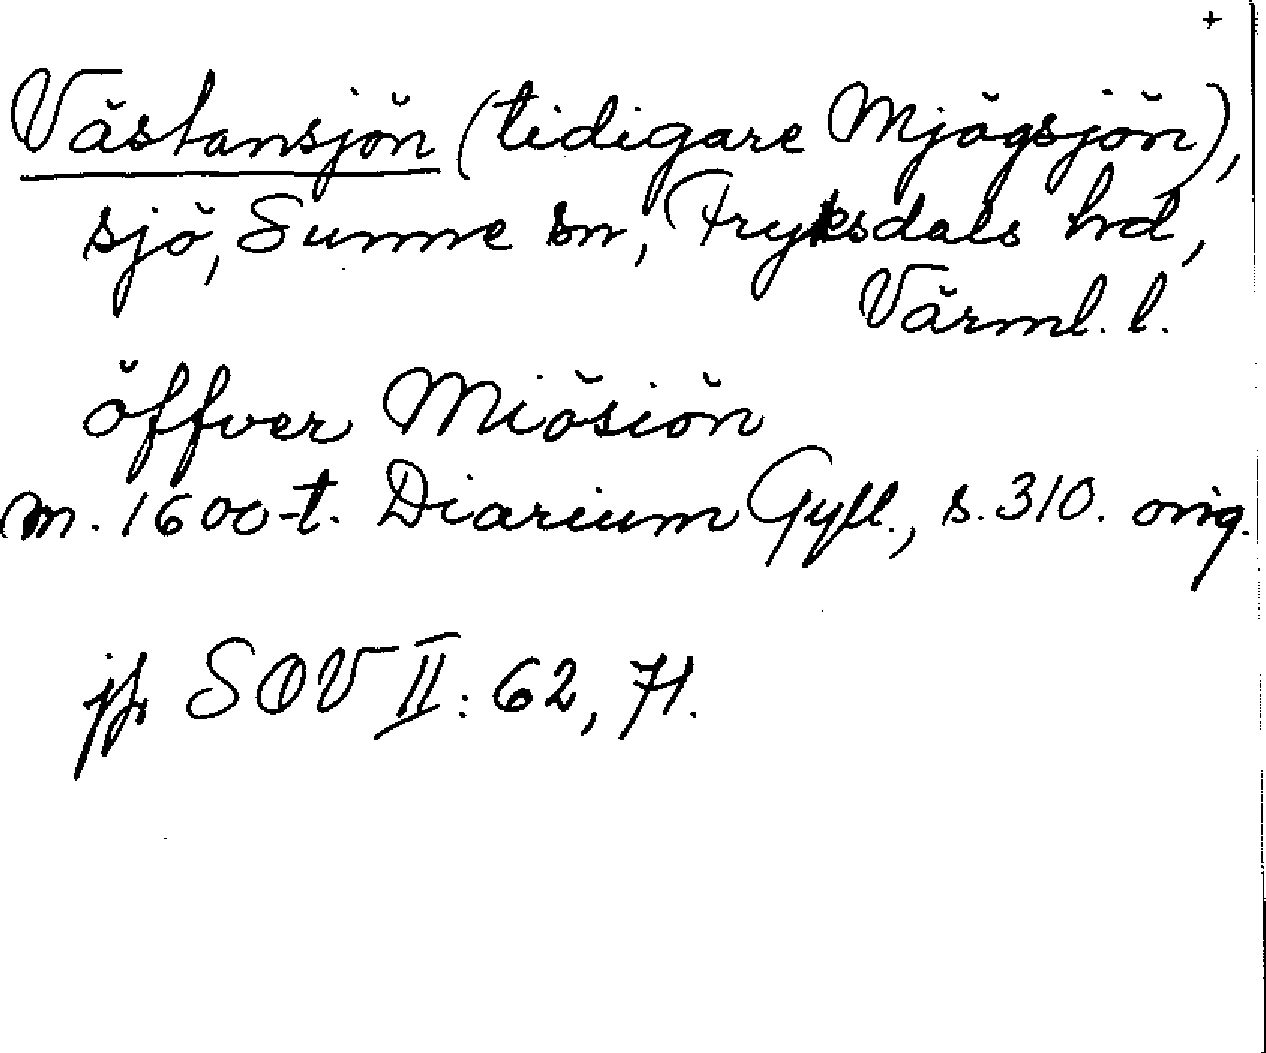 +
Västansjön (tidigare Mjögsjön),
sjö, Sunne sn, Fryksdals hd,
Värml. l.
öffver Miösiön
m. 1600-t. Diarium Gyll., s. 310. orig.
jfr SOV II: 62, 71.